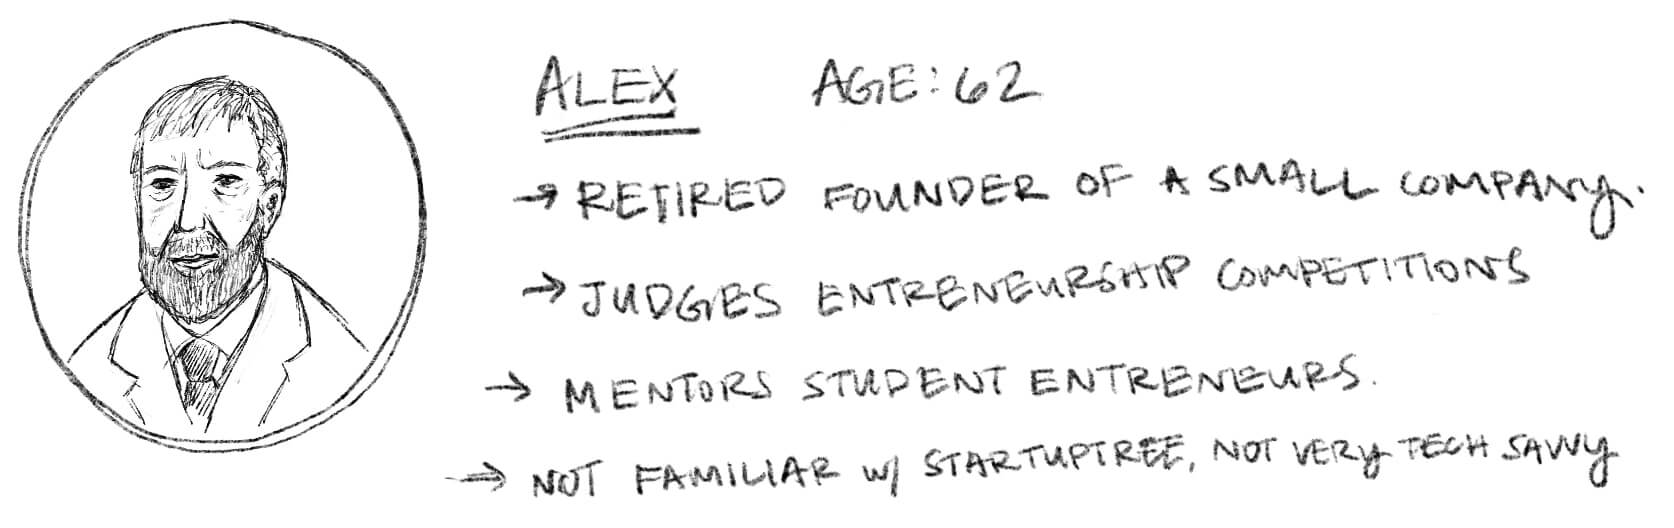 ALEX AGE: 62
→ RETIRED FOUNDER OF A SMALL COMPANY.
→ JUDGES ENTRENEURSHIP COMPETITIONS
→ MENTORS STUDENT ENTRENEURS.
→ NOT FAMILIAR W/ STARTUPTREE, NOT VERY TECH SAVVY